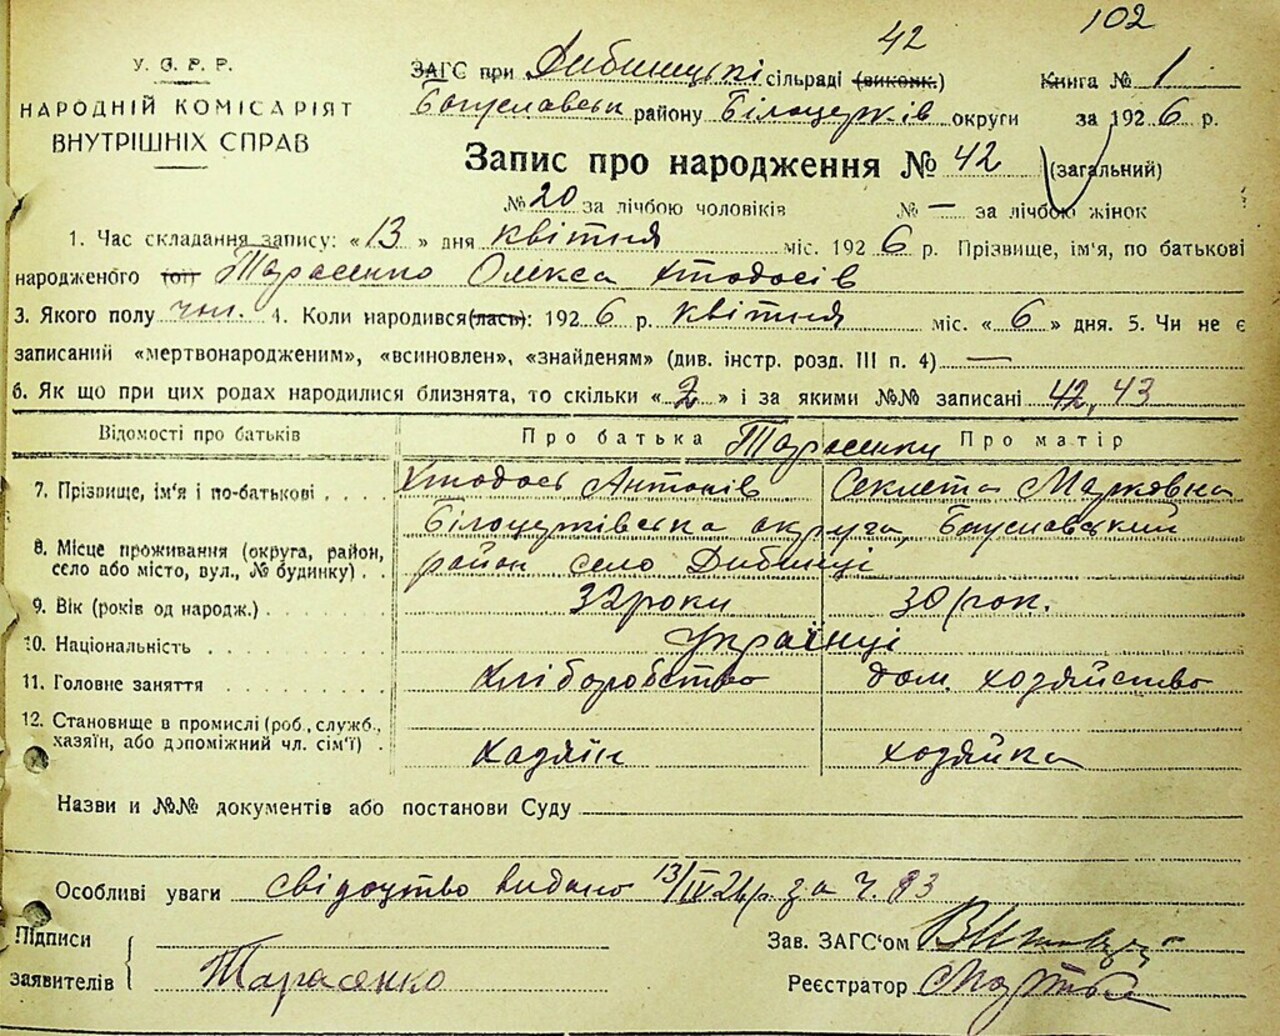 42
102
У. С. Р. Р.
НАРОДНІЙ КОМІСАРІЯТ
ВНУТРІШНІХ СПРАВ
ЗАГС при Дибинецькі сільраді (виконк.) Книга № 1
Богуславськ району Білоцерків округи за 1926 р.
Запис про народження № 42 (загальний)
№ 20 за лічбою чоловіків № — за лічбою жінок
1. Час складання запису: «13» дня квітня міс. 1926 р. Прізвище, ім'я, по батькові
народженого (ої) Тарасенко Олекса Хтодосів
3. Якого полу чол. 4. Коли народився(лась): 1926 р. квітня міс. «6» дня. 5. Чи не є
записаний «мертвонародженим», «всиновлен», «знайденям» (див. інстр. розд. III п. 4) —
6. Як що при цих родах народилися близнята, то скільки «2» і за якими №№ записані 42, 43
Відомості про батьків Про батька Про матір
Тарасенки
7. Прізвище, ім'я і по-батькові Хтодось Антонів Секлета Марковна
8. Місце проживання (округа, район, село або місто, вул., № будинку) Білоцерківська округа, Богуславський
район село Дибинці
9. Вік (років од народж.) 32 роки 30 рок.
10. Національність Українці
11. Головне заняття Хліборобство дом. хозяйство
12. Становище в промислі (роб., служб.,
хазяїн, або допоміжний чл. сім'ї) Хазяїн хозяйка
Назви и №№ документів або постанови Суду
Особливі уваги свідоцтво видано 13/IV 26 р. за ч. 93
Підписи
заявителів Тарасенко
Зав. ЗАГС'ом
Реєстратор